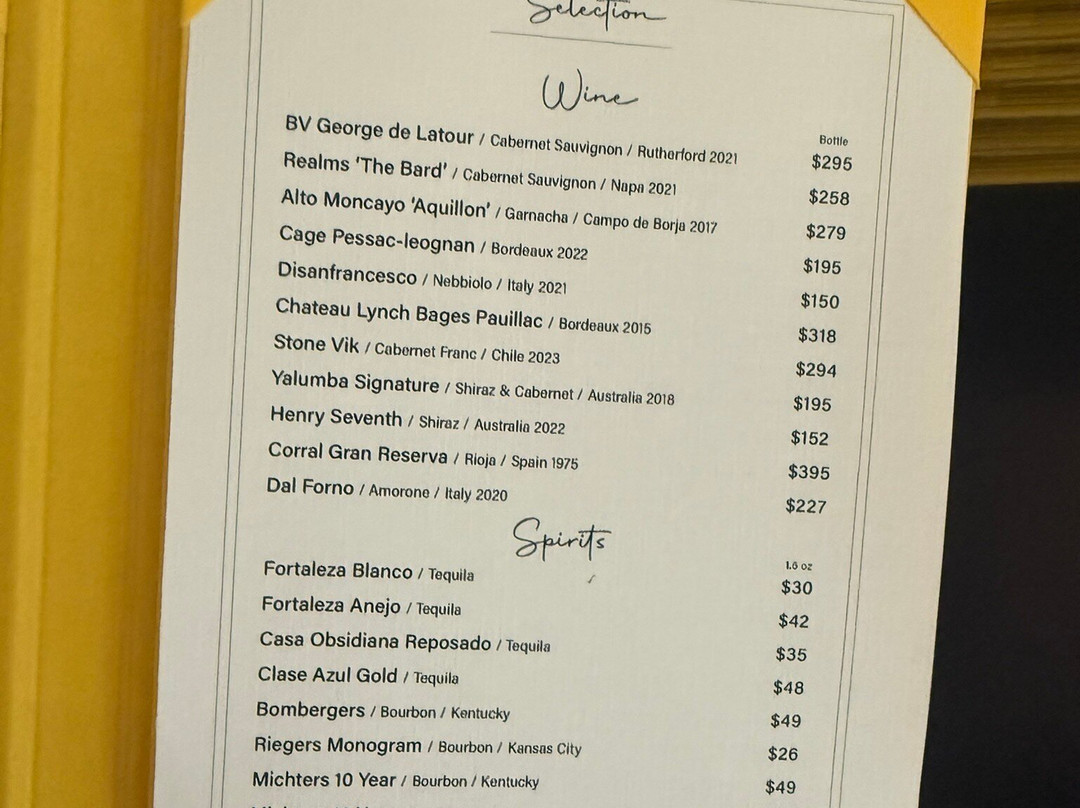 Selection
Wine
Bottle
BV George de Latour / Cabernet Sauvignon / Rutherford 2021 $295
Realms 'The Bard' / Cabernet Sauvignon / Napa 2021 $258
Alto Moncayo 'Aquillon' / Garnacha / Campo de Borja 2017 $279
Cage Pessac-leognan / Bordeaux 2022 $195
Disanfrancesco / Nebbiolo / Italy 2021 $150
Chateau Lynch Bages Pauillac / Bordeaux 2015 $318
Stone Vik / Cabernet Franc / Chile 2023 $294
Yalumba Signature / Shiraz & Cabernet / Australia 2018 $195
Henry Seventh / Shiraz / Australia 2022 $152
Corral Gran Reserva / Rioja / Spain 1975 $395
Dal Forno / Amorone / Italy 2020 $227
Spirits
1.5 oz
Fortaleza Blanco / Tequila $30
Fortaleza Anejo / Tequila $42
Casa Obsidiana Reposado / Tequila $35
Clase Azul Gold / Tequila $48
Bombergers / Bourbon / Kentucky $49
Riegers Monogram / Bourbon / Kansas City $26
Michters 10 Year / Bourbon / Kentucky $49